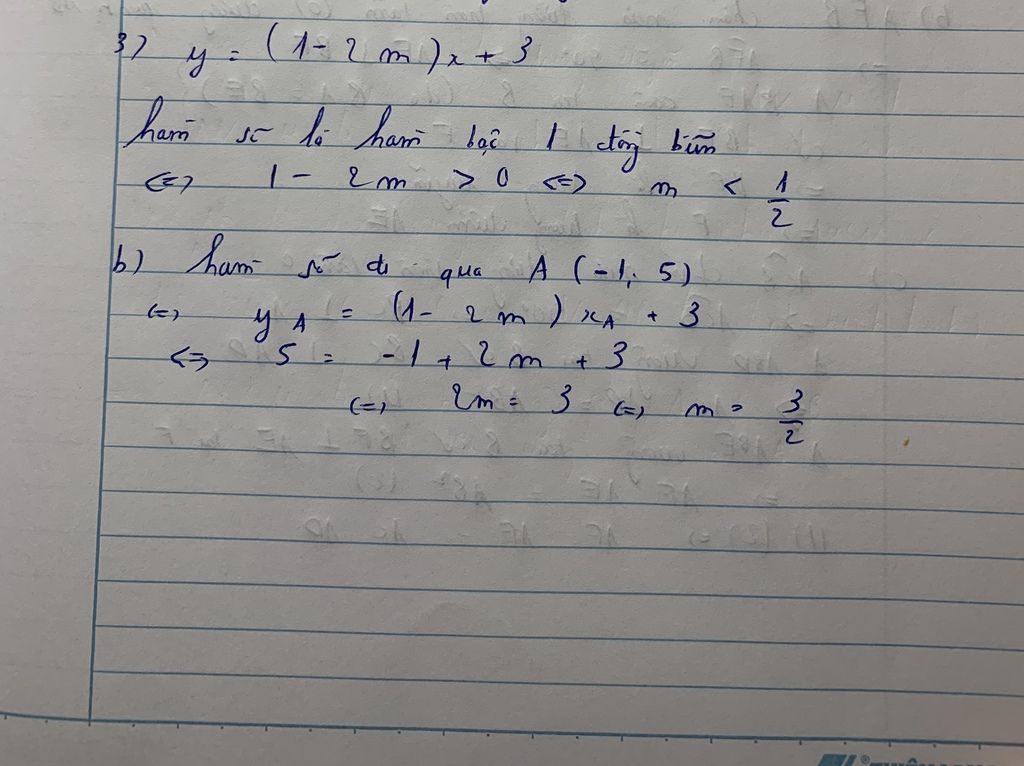 3) y = (1 - 2m)x + 3
hàm số là hàm bậc 1 đồng biến
<=> 1 - 2m > 0 <=> m < 1/2
b) hàm số đi qua A (-1; 5)
<=> y_A = (1 - 2m) x_A + 3
<=> 5 = -1 + 2m + 3
<=> 2m = 3 <=> m = 3/2